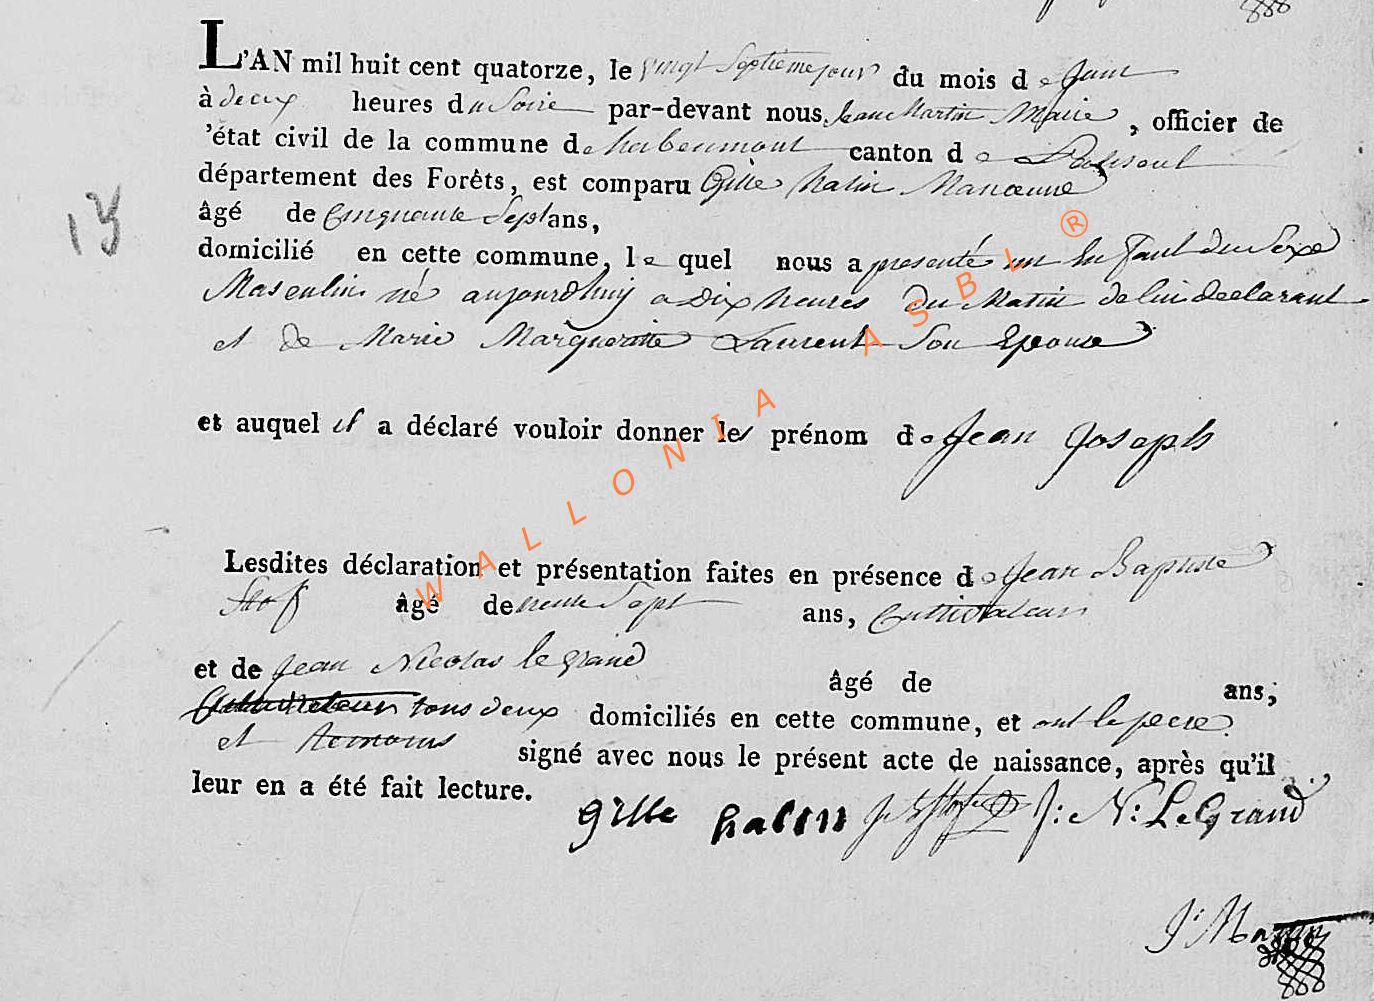 L'AN mil huit cent quatorze, le vingt Septieme jour du mois de Juin
à deux heures du Soire par-devant nous Jean Martin Maire, officier de
'état civil de la commune de canton de
département des Forêts, est comparu Gille halin Manoeuve
âgé de Cinquante Sept ans,
13
domicilié en cette commune, le quel nous a presenté un En fant du Sexe
Masculin né aujourdhuy a Dix heures du Matin de lui declarant
et de Marie Margueritte Laurent Son Epouse
et auquel il a déclaré vouloir donner les prénom de Jean Joseph
Lesdites déclaration et présentation faites en présence de Jean Baptiste
âgé de trente Sept ans, Cultivateur
et de Jean Nicolas le grand âgé de ans;
Cultivateur tous deux domiciliés en cette commune, et ont le pere
et temoins signé avec nous le présent acte de naissance, après qu'il
leur en a été fait lecture.
gille halin J: N: LeGrand
J: Martin
WALLONIA ASBL ®